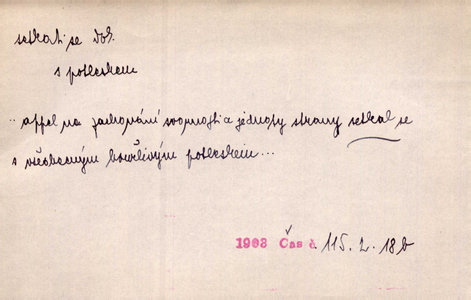 setkati se dok.
s potleskem
.. appel na zachování svornosti a jednoty strany setkal se
s všeobecným bouřlivým potleskem...
1903 Čas č. 115. 2. 18 b